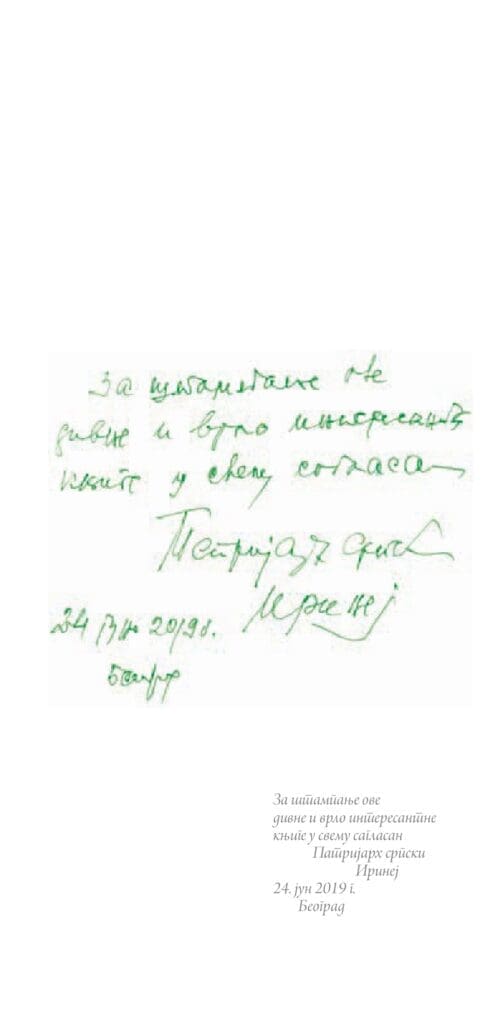 За штампање ове
дивне и врло интересантне
књиге у свему сагласан
Патријарх српски
Иринеј
24. јун 2019 г.
Београд
За штампање ове
дивне и врло интересантне
књиге у свему сагласан
Патријарх српски
Иринеј
24. јун 2019 г.
Београд